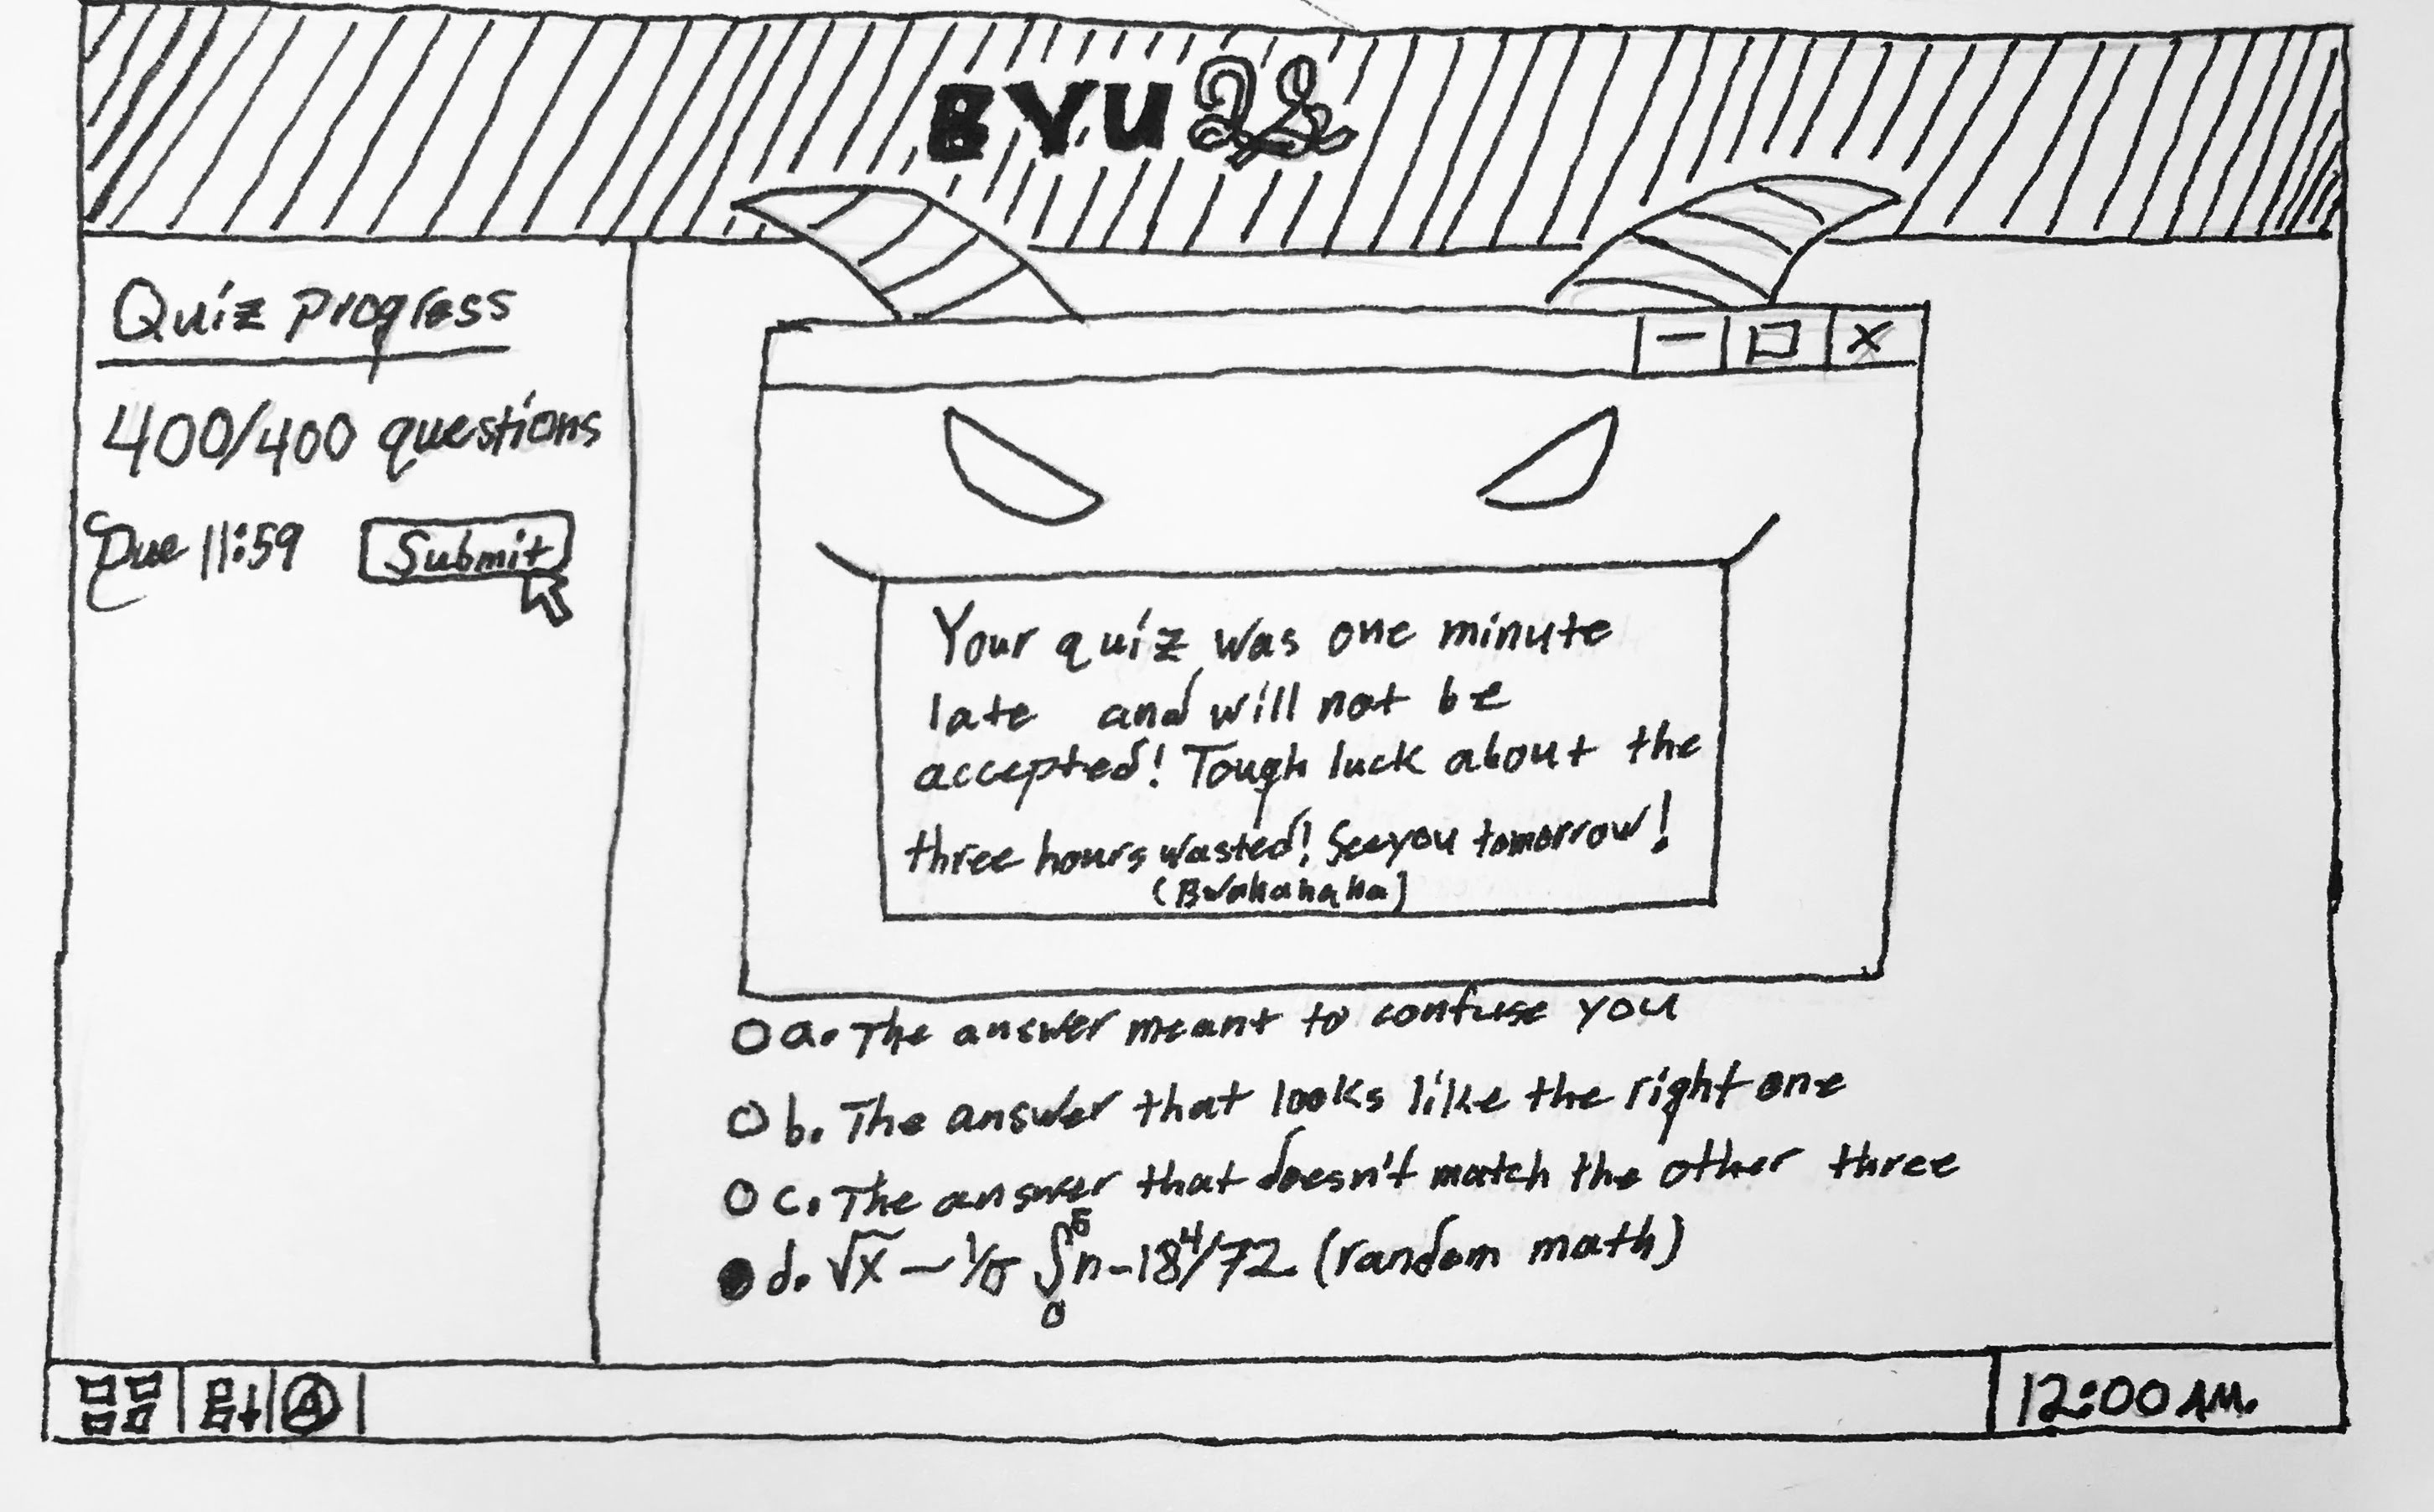 BYU
Quiz progress
400/400 questions
Due 11:59
Submit
Your quiz was one minute
late and will not be
accepted! Tough luck about the
three hours wasted! See you tomorrow!
(Bwahahaha)
a. The answer meant to confuse you
b. The answer that looks like the right one
c. The answer that doesn't match the other three
d. √x - 1/σ ∫₀⁵ n-18⁴/72 (random math)
12:00 AM.